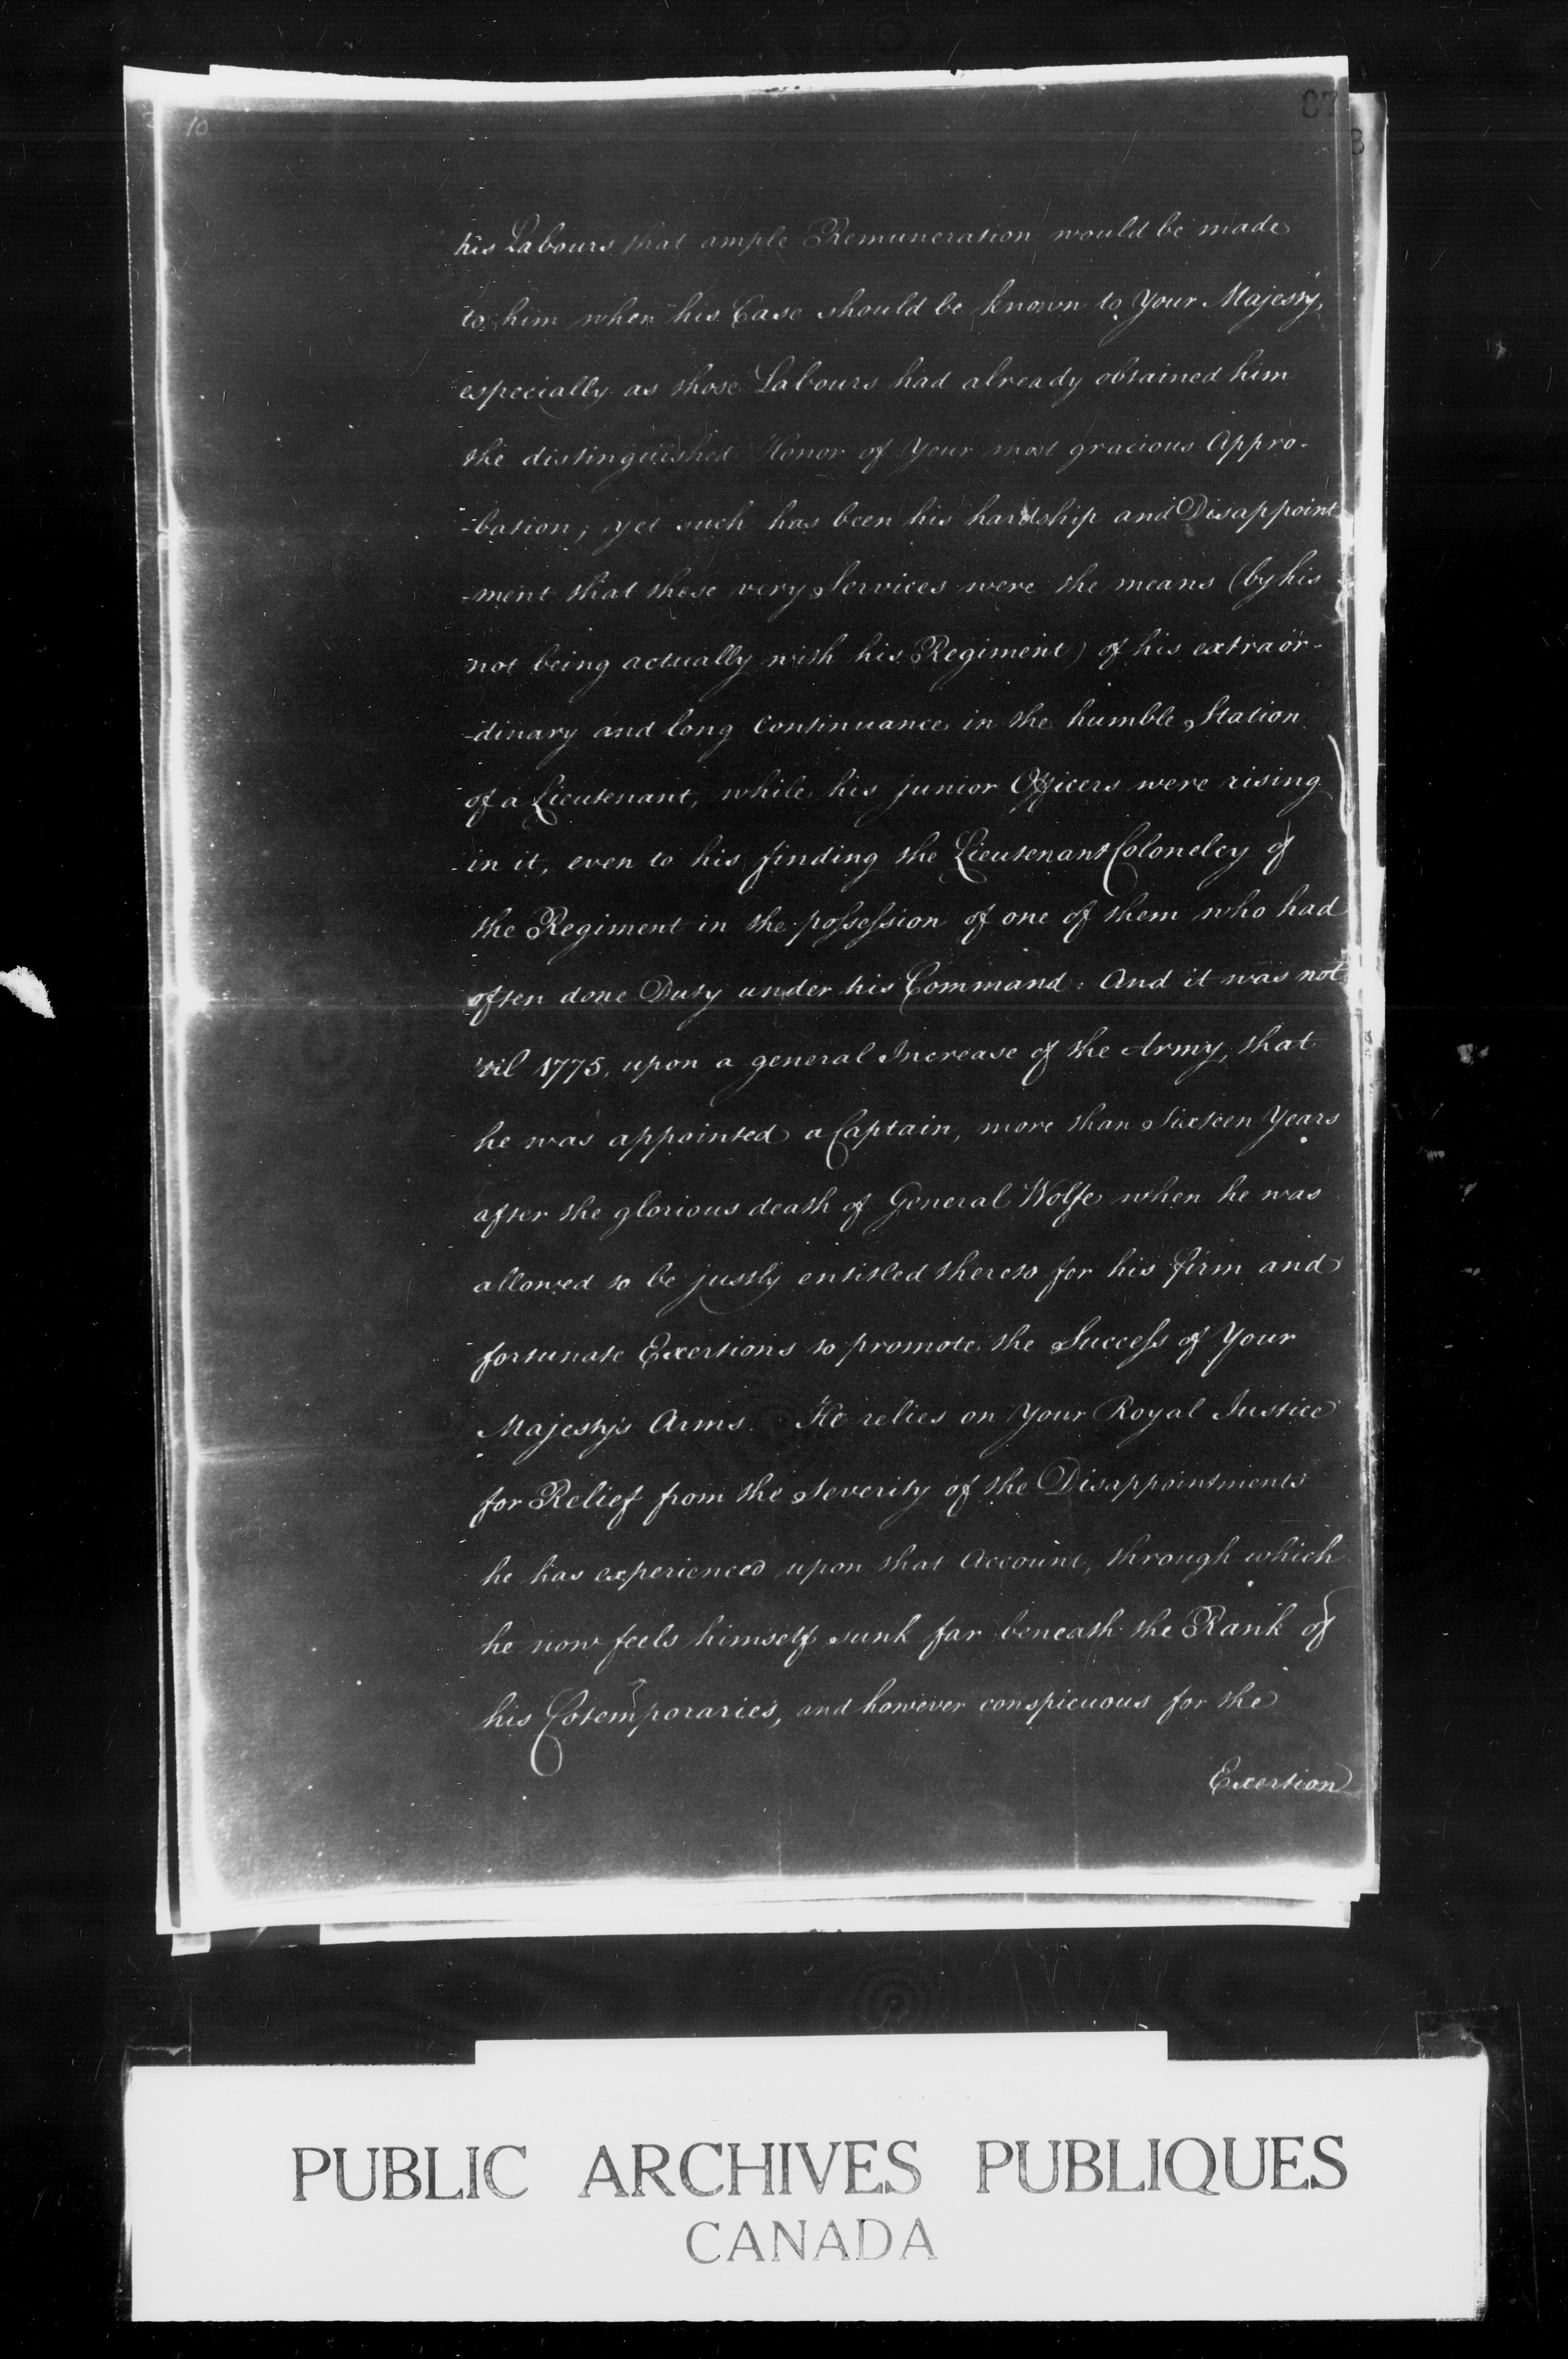 10
his Labours that ample Remuneration would be made
to him when his Case should be known to Your Majesty,
especially as those Labours had already obtained him
the distinguished Honor of Your most gracious Appro-
-bation; yet such has been his hardship and Disappoint
-ment that these very Services were the means (by his
not being actually with his Regiment) of his extraor-
-dinary and long Continuance in the humble Station
of a Lieutenant, while his junior Officers were rising
in it, even to his finding the Lieutenant Colonelcy of
the Regiment in the possession of one of them who had
often done Duty under his Command: And it was not
'til 1775, upon a general Increase of the Army, that
he was appointed a Captain, more than Sixteen Years
after the glorious death of General Wolfe when he was
allowed to be justly entitled thereto for his firm and
fortunate Exertions to promote the Success of Your
Majesty's Arms. He relies on Your Royal Justice
for Relief from the Severity of the Disappointments
he has experienced upon that Account, through which
he now feels himself sunk far beneath the Rank of
his Cotemporaries, and however conspicuous for the
Exertion
PUBLIC ARCHIVES PUBLIQUES
CANADA